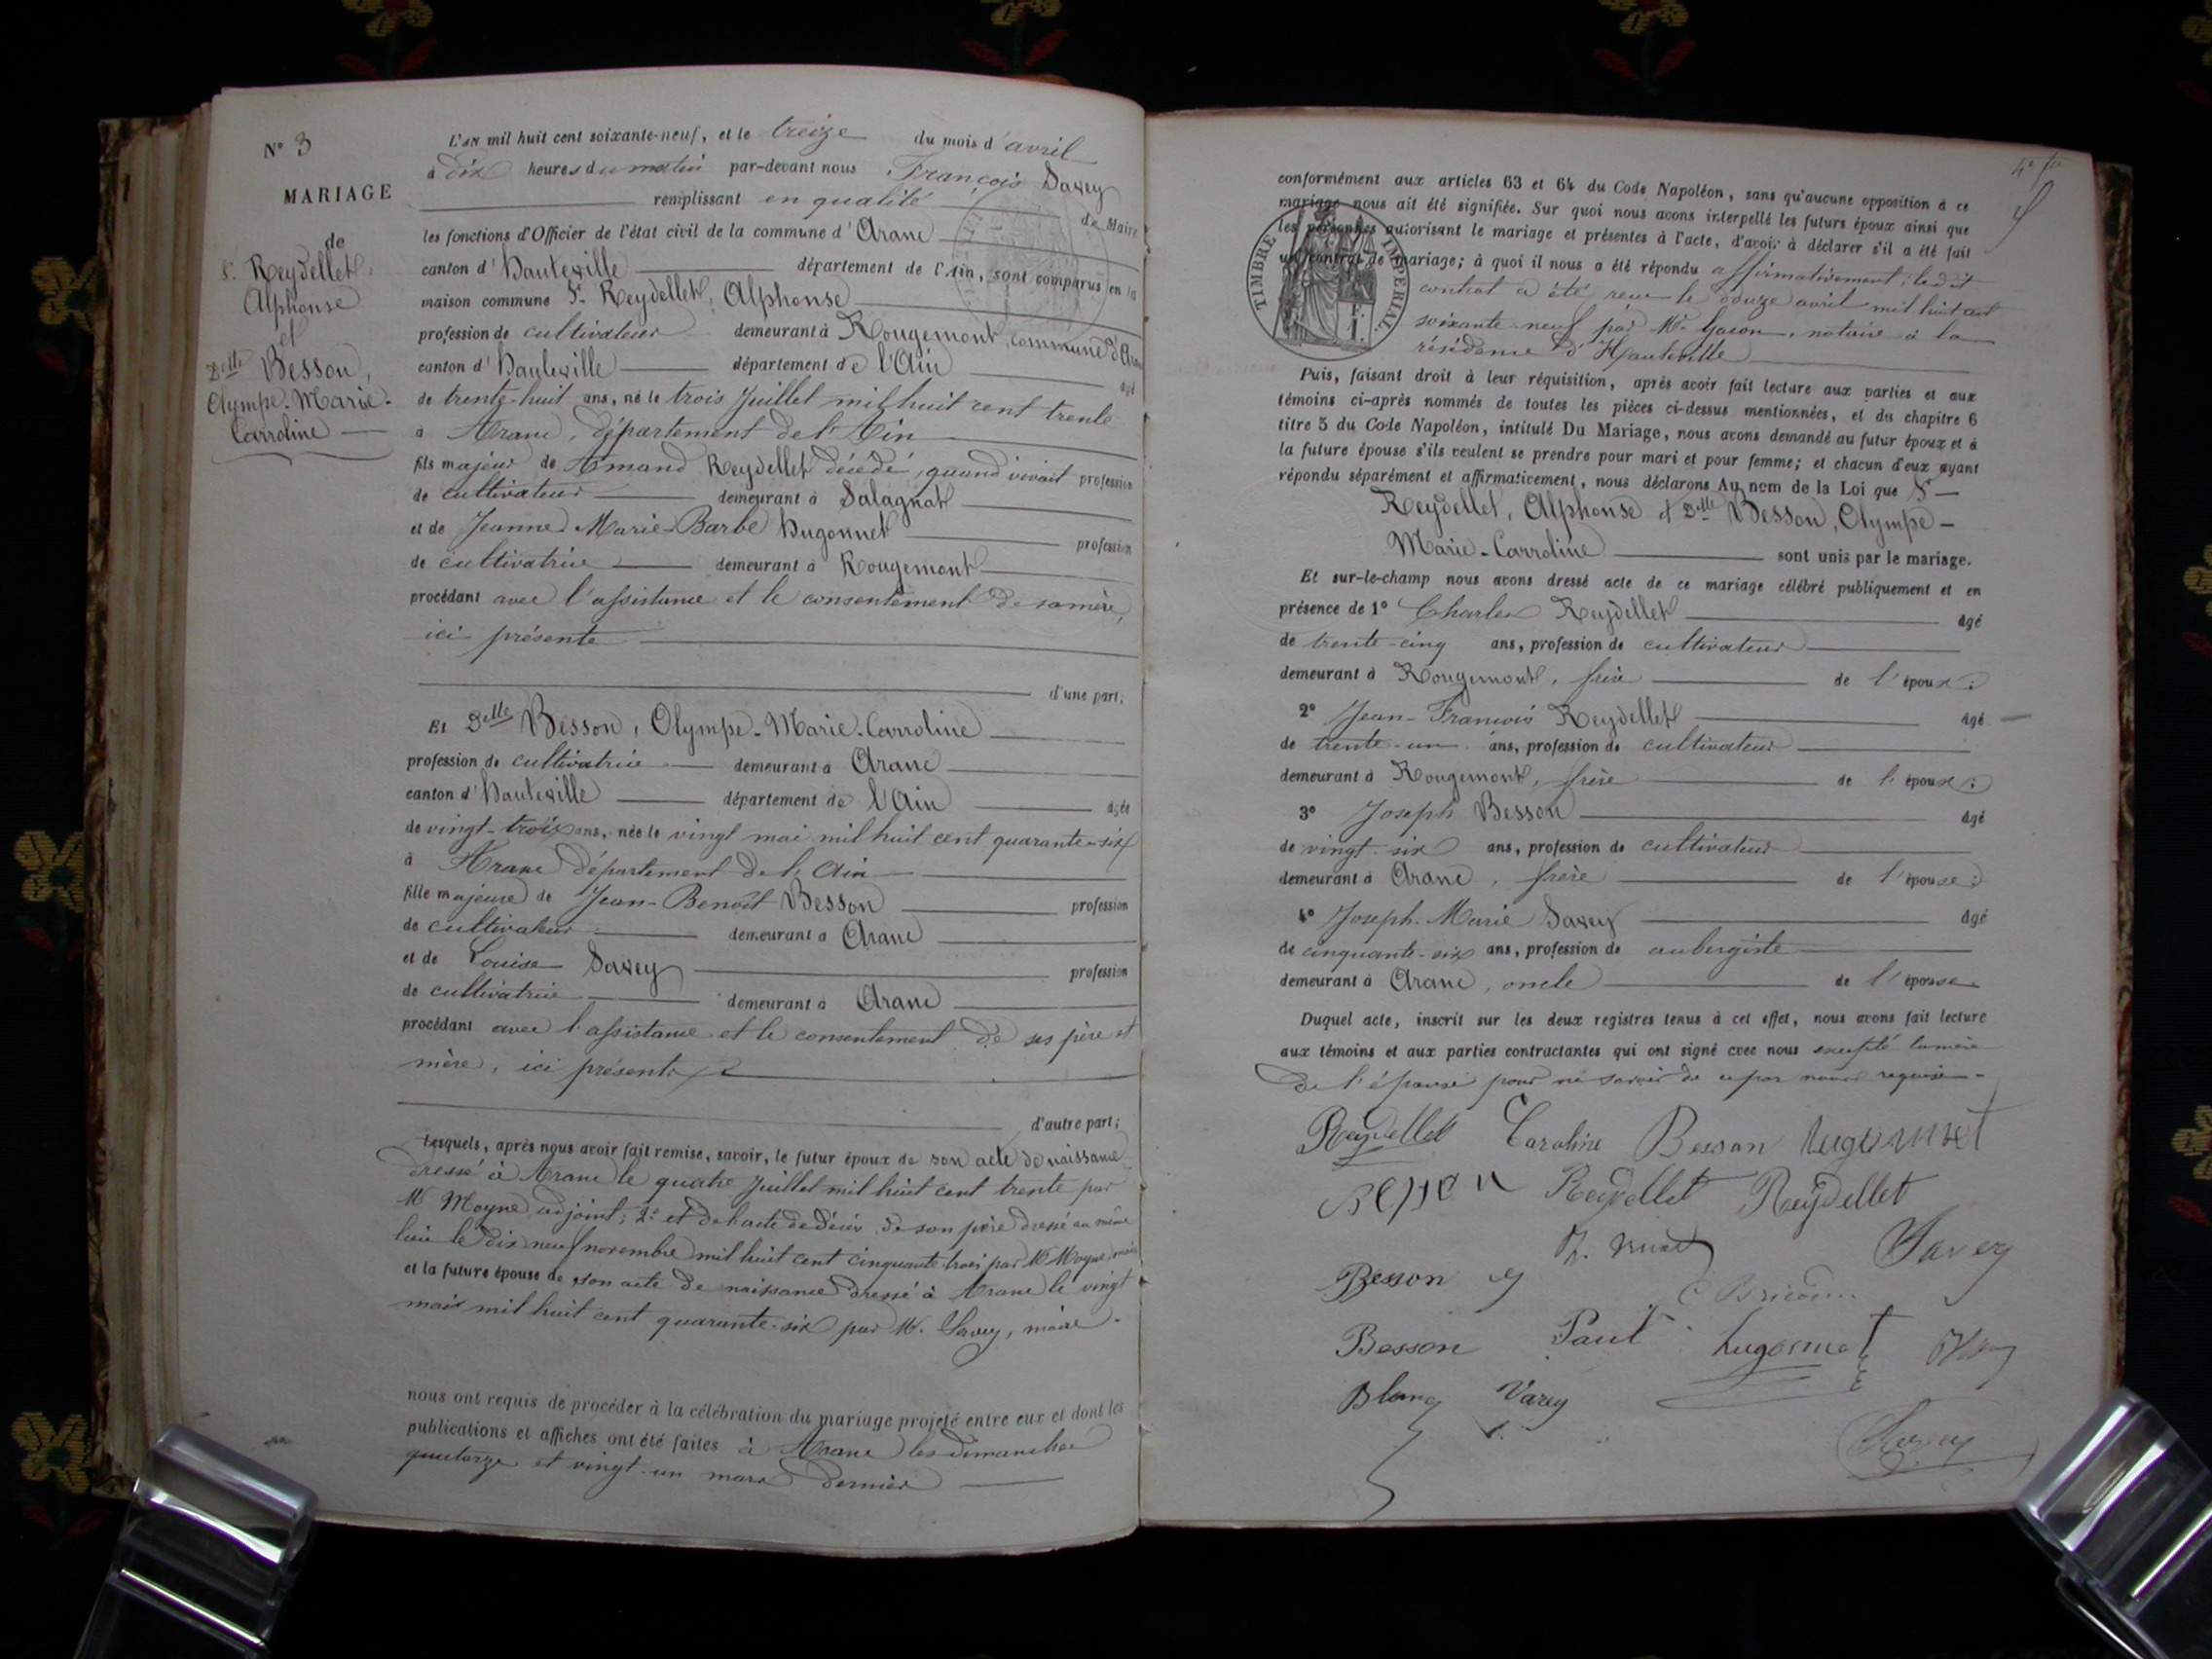 N° 3
MARIAGE
de
Sr. Reydellet,
Alphonse
et
Delle Besson,
Olympe-Marie-
Carroline
L'AN mil huit cent soixante-neuf, et le treize du mois d'avril
à dix heures du matin par-devant nous François Savey
remplissant en qualité de Maire
les fonctions d'Officier de l'état civil de la commune d'Aranc
canton d'Hauteville département de l'Ain, sont comparus en la
maison commune Sr. Reydellet, Alphonse
profession de cultivateur demeurant à Rougemont, commune d'Aranc
canton d'Hauteville département de l'Ain âgé
de trente-huit ans, né le trois Juillet mil huit cent trente
à Aranc, département de l'Ain
fils majeur de Amand Reydellet décédé, quand vivait profession
de cultivateur demeurant à Salagnat
et de Jeanne Marie-Barbe Hugonnet profession
de cultivatrice demeurant à Rougemont
procédant avec l'assistance et le consentement de sa mère,
ici présente
d'une part;
Et Delle Besson, Olympe-Marie-Carroline
profession de cultivatrice demeurant à Aranc
canton d'Hauteville département de l'Ain âgée
de vingt-trois ans, née le vingt mai mil huit cent quarante-six
à Aranc département de l'Ain
fille majeure de Jean-Benoît Besson profession
de cultivateur demeurant à Aranc
et de Louise Savey profession
de cultivatrice demeurant à Aranc
procédant avec l'assistance et le consentement de ses père et
mère, ici présents
d'autre part;
Lesquels, après nous avoir fait remise, savoir, le futur époux de son acte de naissance
dressé à Aranc le quatre Juillet mil huit cent trente par
Mr Moyne adjoint; 2° et de l'acte de décès de son père dressé au même
lieu le dix neuf novembre mil huit cent cinquante-trois par Mr Moyne, maire
et la future épouse de son acte de naissance dressé à Aranc le vingt
mai mil huit cent quarante-six par Mr. Savey, maire.
nous ont requis de procéder à la célébration du mariage projeté entre eux et dont les
publications et affiches ont été faites à Aranc les dimanches
quatorze et vingt-un mars dernier
conformément aux articles 63 et 64 du Code Napoléon, sans qu'aucune opposition à ce
mariage nous ait été signifiée. Sur quoi nous avons interpellé les futurs époux ainsi que
les personnes autorisant le mariage et présentes à l'acte, d'avoir à déclarer s'il a été fait
un contrat de mariage; à quoi il nous a été répondu affirmativement; ledit
contrat a été reçu le douze avril mil huit cent
soixante neuf par Mr. Gacon, notaire à la
résidence d'Hauteville
TIMBRE IMPÉRIAL
Puis, faisant droit à leur réquisition, après avoir fait lecture aux parties et aux
témoins ci-après nommés de toutes les pièces ci-dessus mentionnées, et du chapitre 6
titre 5 du Code Napoléon, intitulé Du Mariage, nous avons demandé au futur époux et à
la future épouse s'ils veulent se prendre pour mari et pour femme; et chacun d'eux ayant
répondu séparément et affirmativement, nous déclarons Au nom de la Loi que Sr
Reydellet, Alphonse et Delle Besson, Olympe-
Marie-Carroline sont unis par le mariage.
Et sur-le-champ nous avons dressé acte de ce mariage célébré publiquement et en
présence de 1° Charles Reydellet âgé
de trente-cinq ans, profession de cultivateur
demeurant à Rougemont, frère de l'époux;
2° Jean-François Reydellet âgé
de trente-un ans, profession de cultivateur
demeurant à Rougemont, frère de l'époux;
3° Joseph Besson âgé
de vingt-six ans, profession de cultivateur
demeurant à Aranc, frère de l'épouse;
4° Joseph-Marie Savey âgé
de cinquante-six ans, profession de aubergiste
demeurant à Aranc, oncle de l'épouse
Duquel acte, inscrit sur les deux registres tenus à cet effet, nous avons fait lecture
aux témoins et aux parties contractantes qui ont signé avec nous excepté la mère
de l'épouse pour ne savoir de ce par nous requise.
Reydellet Caroline Besson hugonnet
Besson Reydellet Reydellet
Savey
Besson
Besson Paul hugonnet
Blanc Varey
Savey